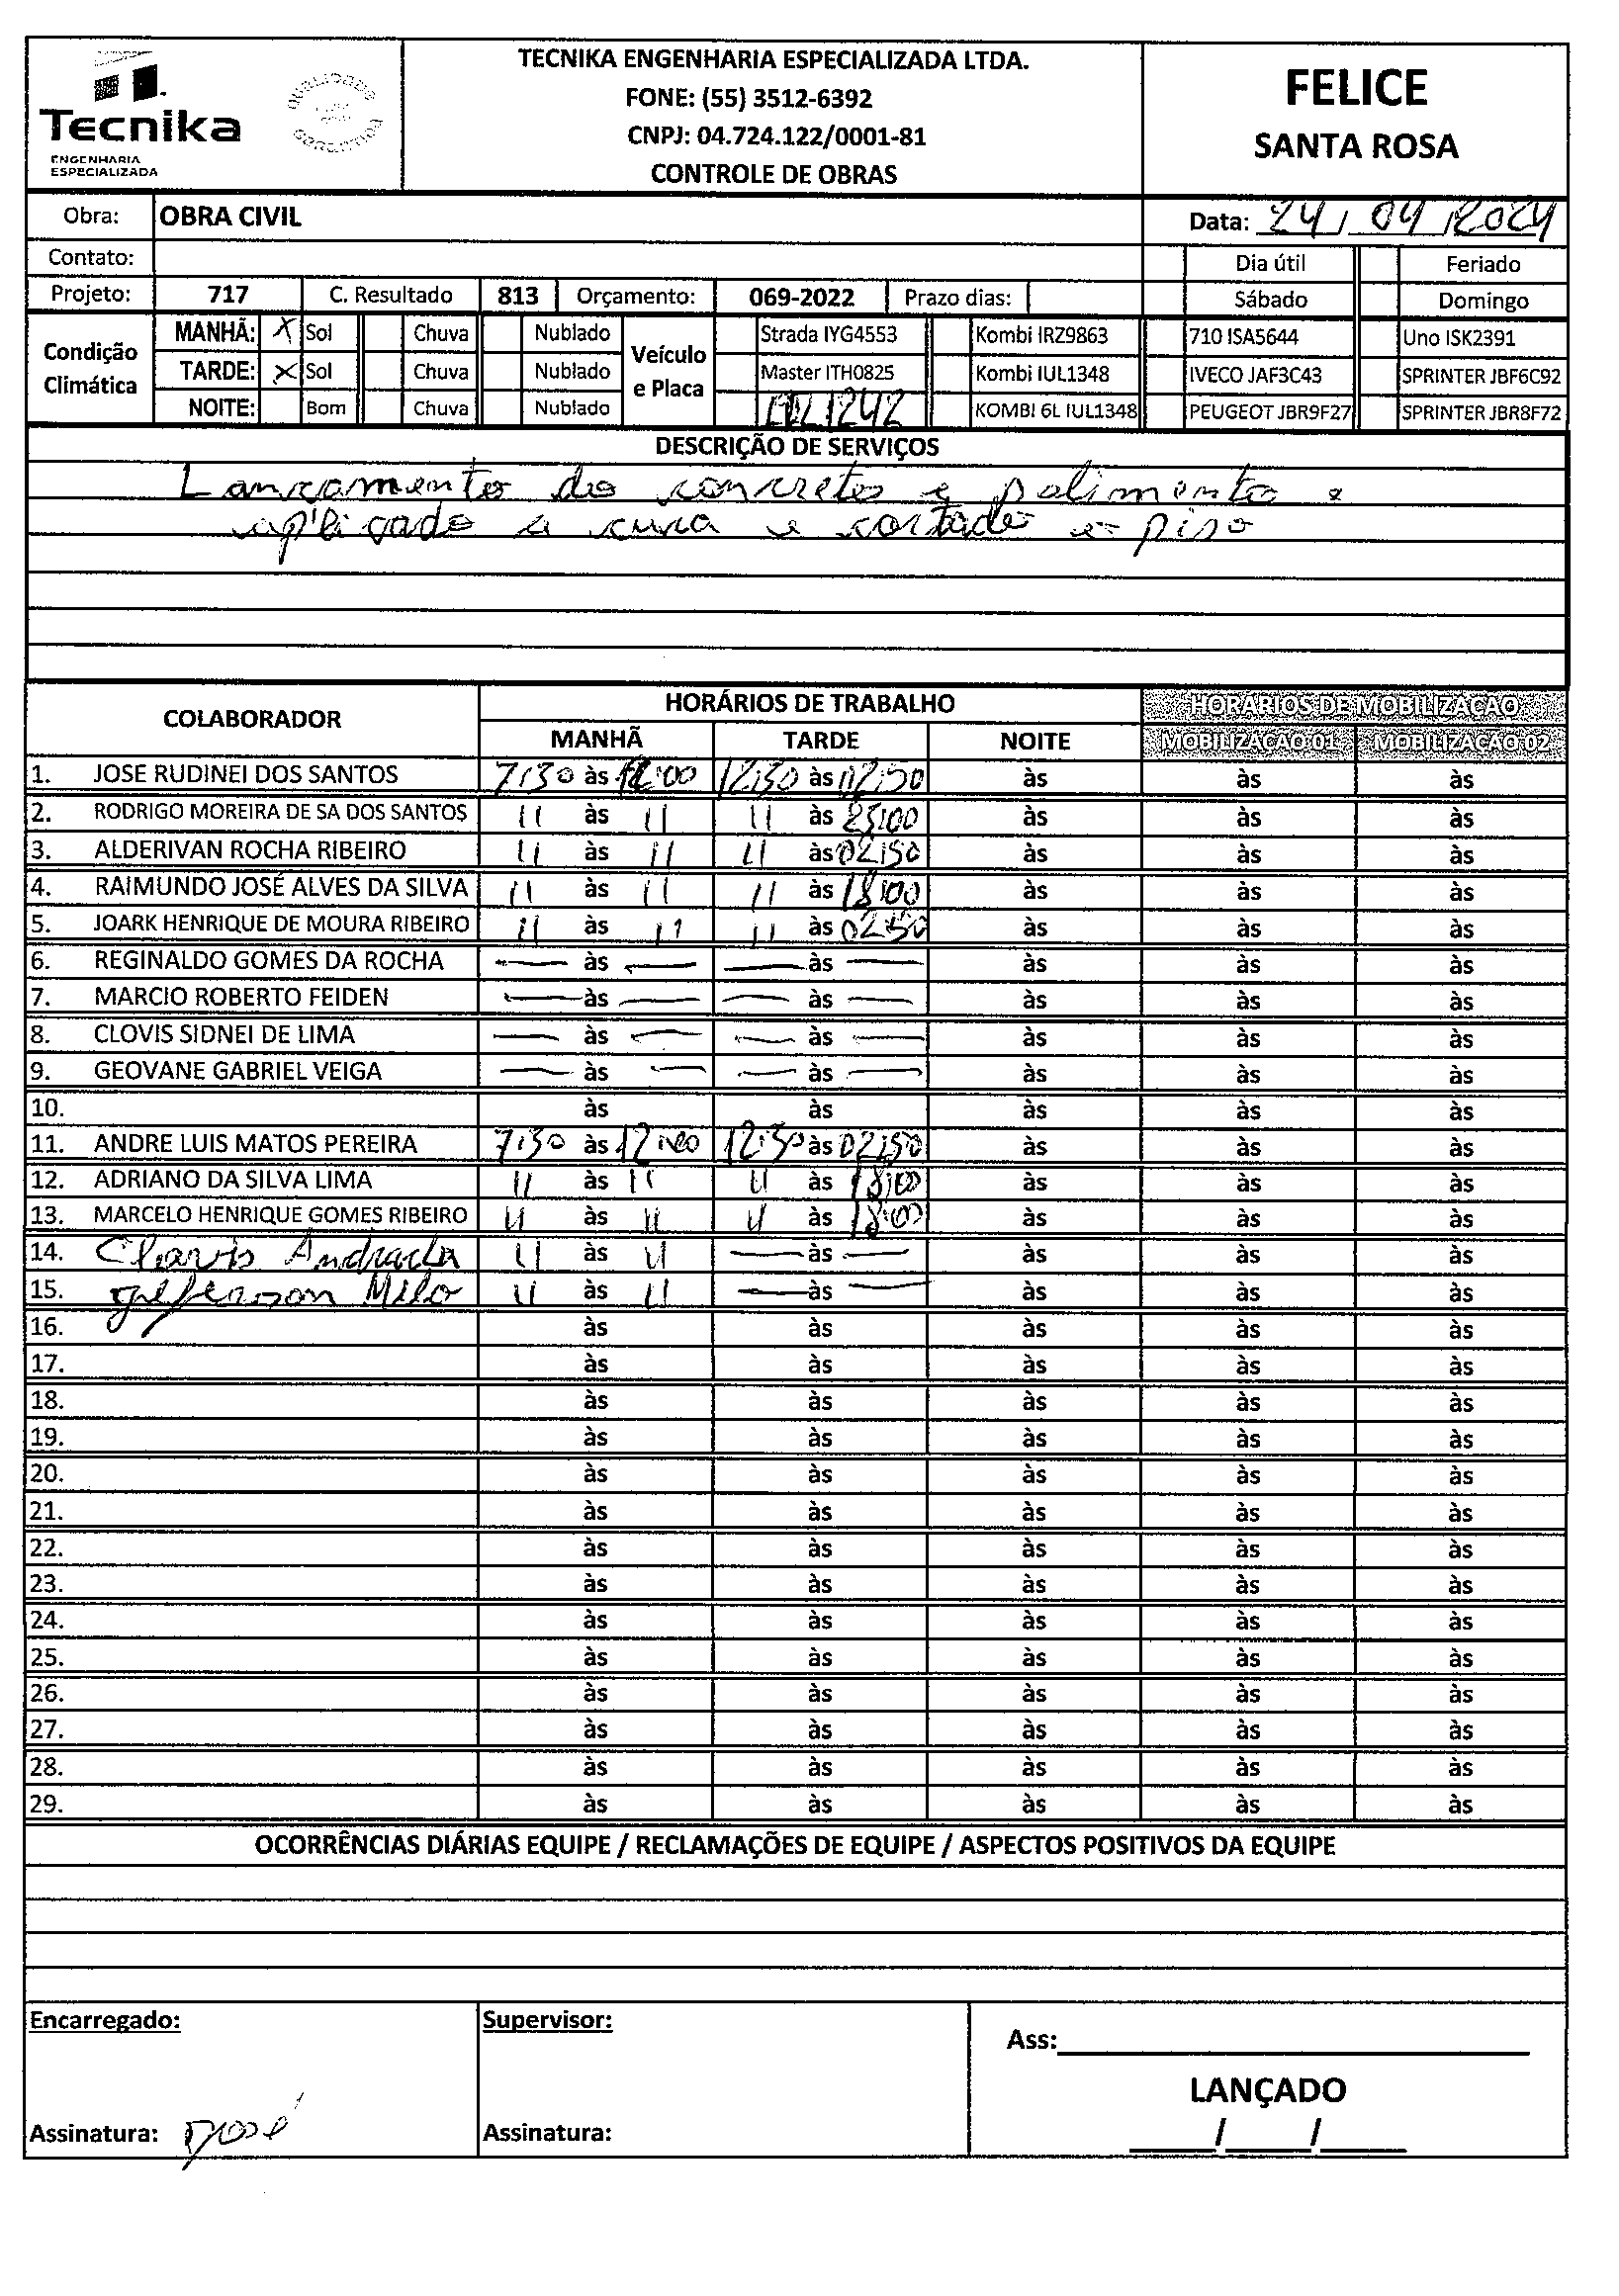 TECNIKA ENGENHARIA ESPECIALIZADA LTDA.
FONE: (55) 3512-6392
CNPJ: 04.724.122/0001-81
CONTROLE DE OBRAS
Tecnika
ENGENHARIA
ESPECIALIZADA
FELICE
SANTA ROSA
Obra: OBRA CIVIL Data: 24/04/2024
Contato: Dia útil Feriado
Projeto: 717 C. Resultado 813 Orçamento: 069-2022 Prazo dias: Sábado Domingo
Condição Climática
MANHÃ: X Sol Chuva Nublado
TARDE: X Sol Chuva Nublado
NOITE: Bom Chuva Nublado
Veículo e Placa
Strada IYG4553 Kombi IRZ9863 710 ISA5644 Uno ISK2391
Master ITH0825 Kombi IUL1348 IVECO JAF3C43 SPRINTER JBF6C92
1242 KOMBI 6L IUL1348 PEUGEOT JBR9F27 SPRINTER JBR8F72
DESCRIÇÃO DE SERVIÇOS
Lançamento do concreto e polimento e
apliçado a cura e cortado e piso
COLABORADOR HORÁRIOS DE TRABALHO HORÁRIOS DE MOBILIZAÇÃO
MANHÃ TARDE NOITE MOBILIZAÇÃO 01 MOBILIZAÇÃO 02
1. JOSE RUDINEI DOS SANTOS 7:30 às 12:00 12:30 às 02:50 às às às
2. RODRIGO MOREIRA DE SA DOS SANTOS 11 às 11 11 às 23:00 às às às
3. ALDERIVAN ROCHA RIBEIRO 11 às 11 11 às 02:50 às às às
4. RAIMUNDO JOSÉ ALVES DA SILVA 11 às 11 11 às 18:00 às às às
5. JOARK HENRIQUE DE MOURA RIBEIRO 11 às 11 11 às 02:50 às às às
6. REGINALDO GOMES DA ROCHA — às — — às — às às às
7. MARCIO ROBERTO FEIDEN — às — — às — às às às
8. CLOVIS SIDNEI DE LIMA — às — — às — às às às
9. GEOVANE GABRIEL VEIGA — às — — às — às às às
10. às às às às às
11. ANDRE LUIS MATOS PEREIRA 7:30 às 12:00 12:30 às 02:50 às às às
12. ADRIANO DA SILVA LIMA 11 às 11 11 às 18:00 às às às
13. MARCELO HENRIQUE GOMES RIBEIRO 11 às 11 11 às 18:00 às às às
14. Andrada 11 às 11 — às — às às às
15. Jeferson Melo 11 às 11 — às — às às às
16. às às às às às
17. às às às às às
18. às às às às às
19. às às às às às
20. às às às às às
21. às às às às às
22. às às às às às
23. às às às às às
24. às às às às às
25. às às às às às
26. às às às às às
27. às às às às às
28. às às às às às
29. às às às às às
OCORRÊNCIAS DIÁRIAS EQUIPE / RECLAMAÇÕES DE EQUIPE / ASPECTOS POSITIVOS DA EQUIPE
Encarregado: Supervisor: Ass:
LANÇADO
Assinatura: José Assinatura: / /